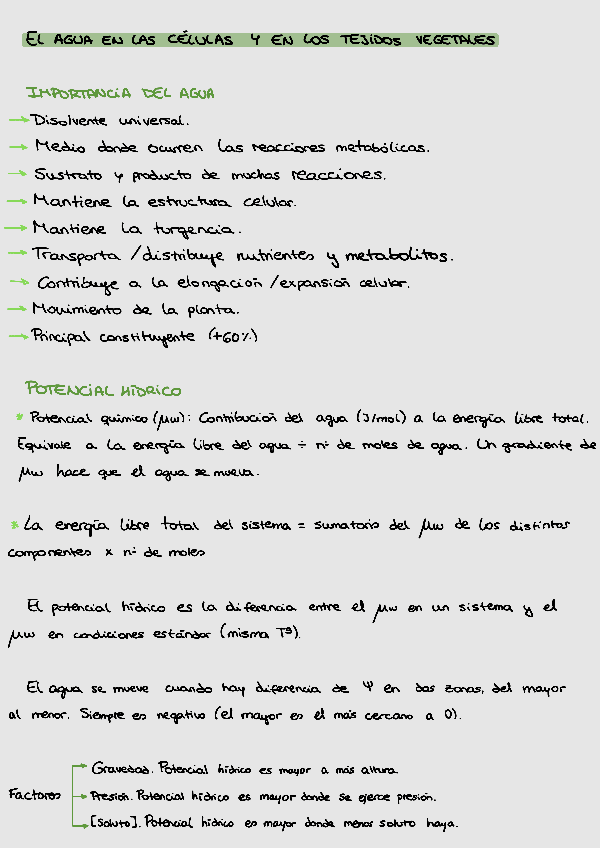 EL AGUA EN LAS CÉLULAS Y EN LOS TEJIDOS VEGETALES
IMPORTANCIA DEL AGUA
→ Disolvente universal.
→ Medio donde ocurren las reacciones metabólicas.
→ Sustrato y producto de muchas reacciones.
→ Mantiene la estructura celular.
→ Mantiene la turgencia.
→ Transporta / distribuye nutrientes y metabolitos.
→ Contribuye a la elongación / expansión celular.
→ Movimiento de la planta.
→ Principal constituyente (+60%)
POTENCIAL HÍDRICO
* Potencial químico (μw): Contribución del agua (J/mol) a la energía libre total.
Equivale a la energía libre del agua ÷ nº de moles de agua. Un gradiente de
μw hace que el agua se mueva.
* La energía libre total del sistema = sumatorio del μw de los distintos
componentes x nº de moles
El potencial hídrico es la diferencia entre el μw en un sistema y el
μw en condiciones estándar (misma Tª).
El agua se mueve cuando hay diferencia de Ψ en dos zonas, del mayor
al menor. Siempre es negativo (el mayor es el más cercano a 0).
Gravedad. Potencial hídrico es mayor a más altura.
Factores → Presión. Potencial hídrico es mayor donde se ejerce presión.
[Soluto]. Potencial hídrico es mayor donde menos soluto haya.